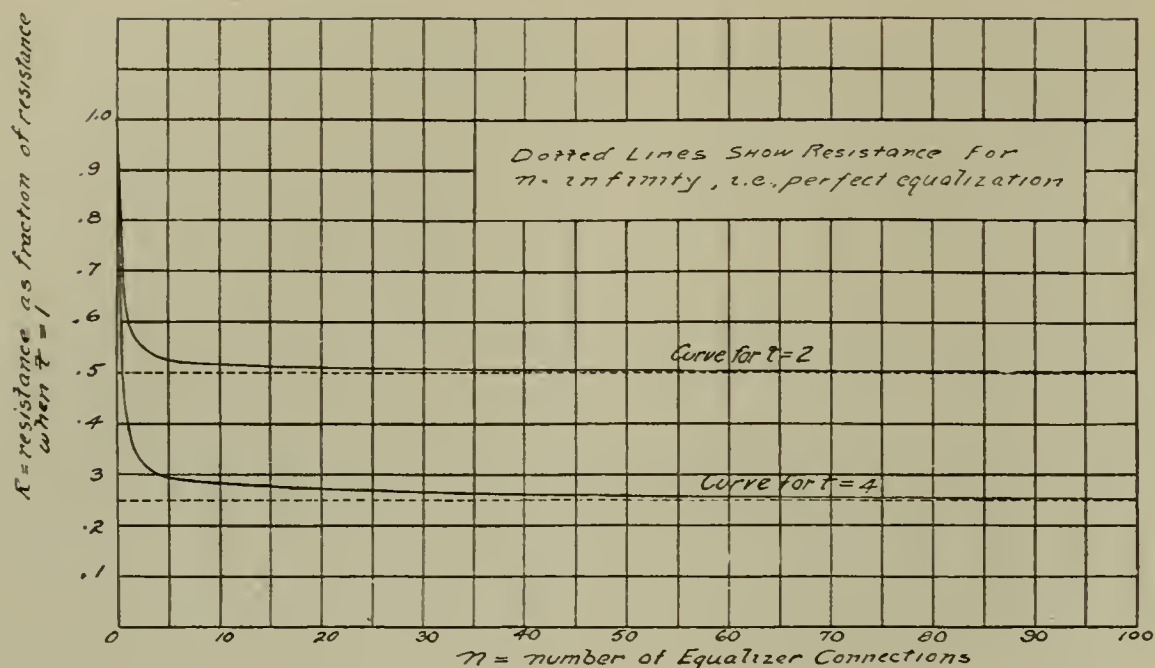 R = resistance as fraction of resistance
when t = 1
1.0
.9
.8
.7
.6
.5
.4
3
.2
.1
Dotted Lines Show Resistance For
n = infinity, i.e., perfect equalization
Curve for t = 2
Curve for t = 4
0 10 20 30 40 50 60 70 80 90 100
n = number of Equalizer Connections